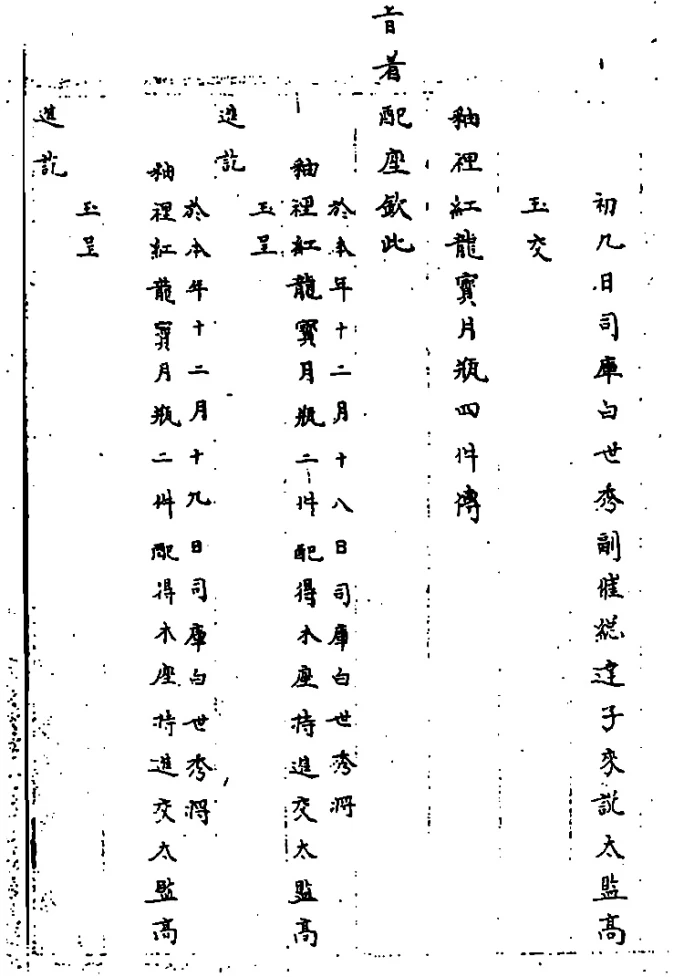 初九日司庫白世秀副催總達子來說太監高
玉交
釉裡紅龍寶月瓶四件傳
旨着配座欽此
於本年十二月十八日司庫白世秀將
釉裡紅龍寶月瓶二件配得木座持進交太監高
玉呈
進訖
於本年十二月十九日司庫白世秀將
釉裡紅龍寶月瓶二件配得木座持進交太監高
玉呈
進訖